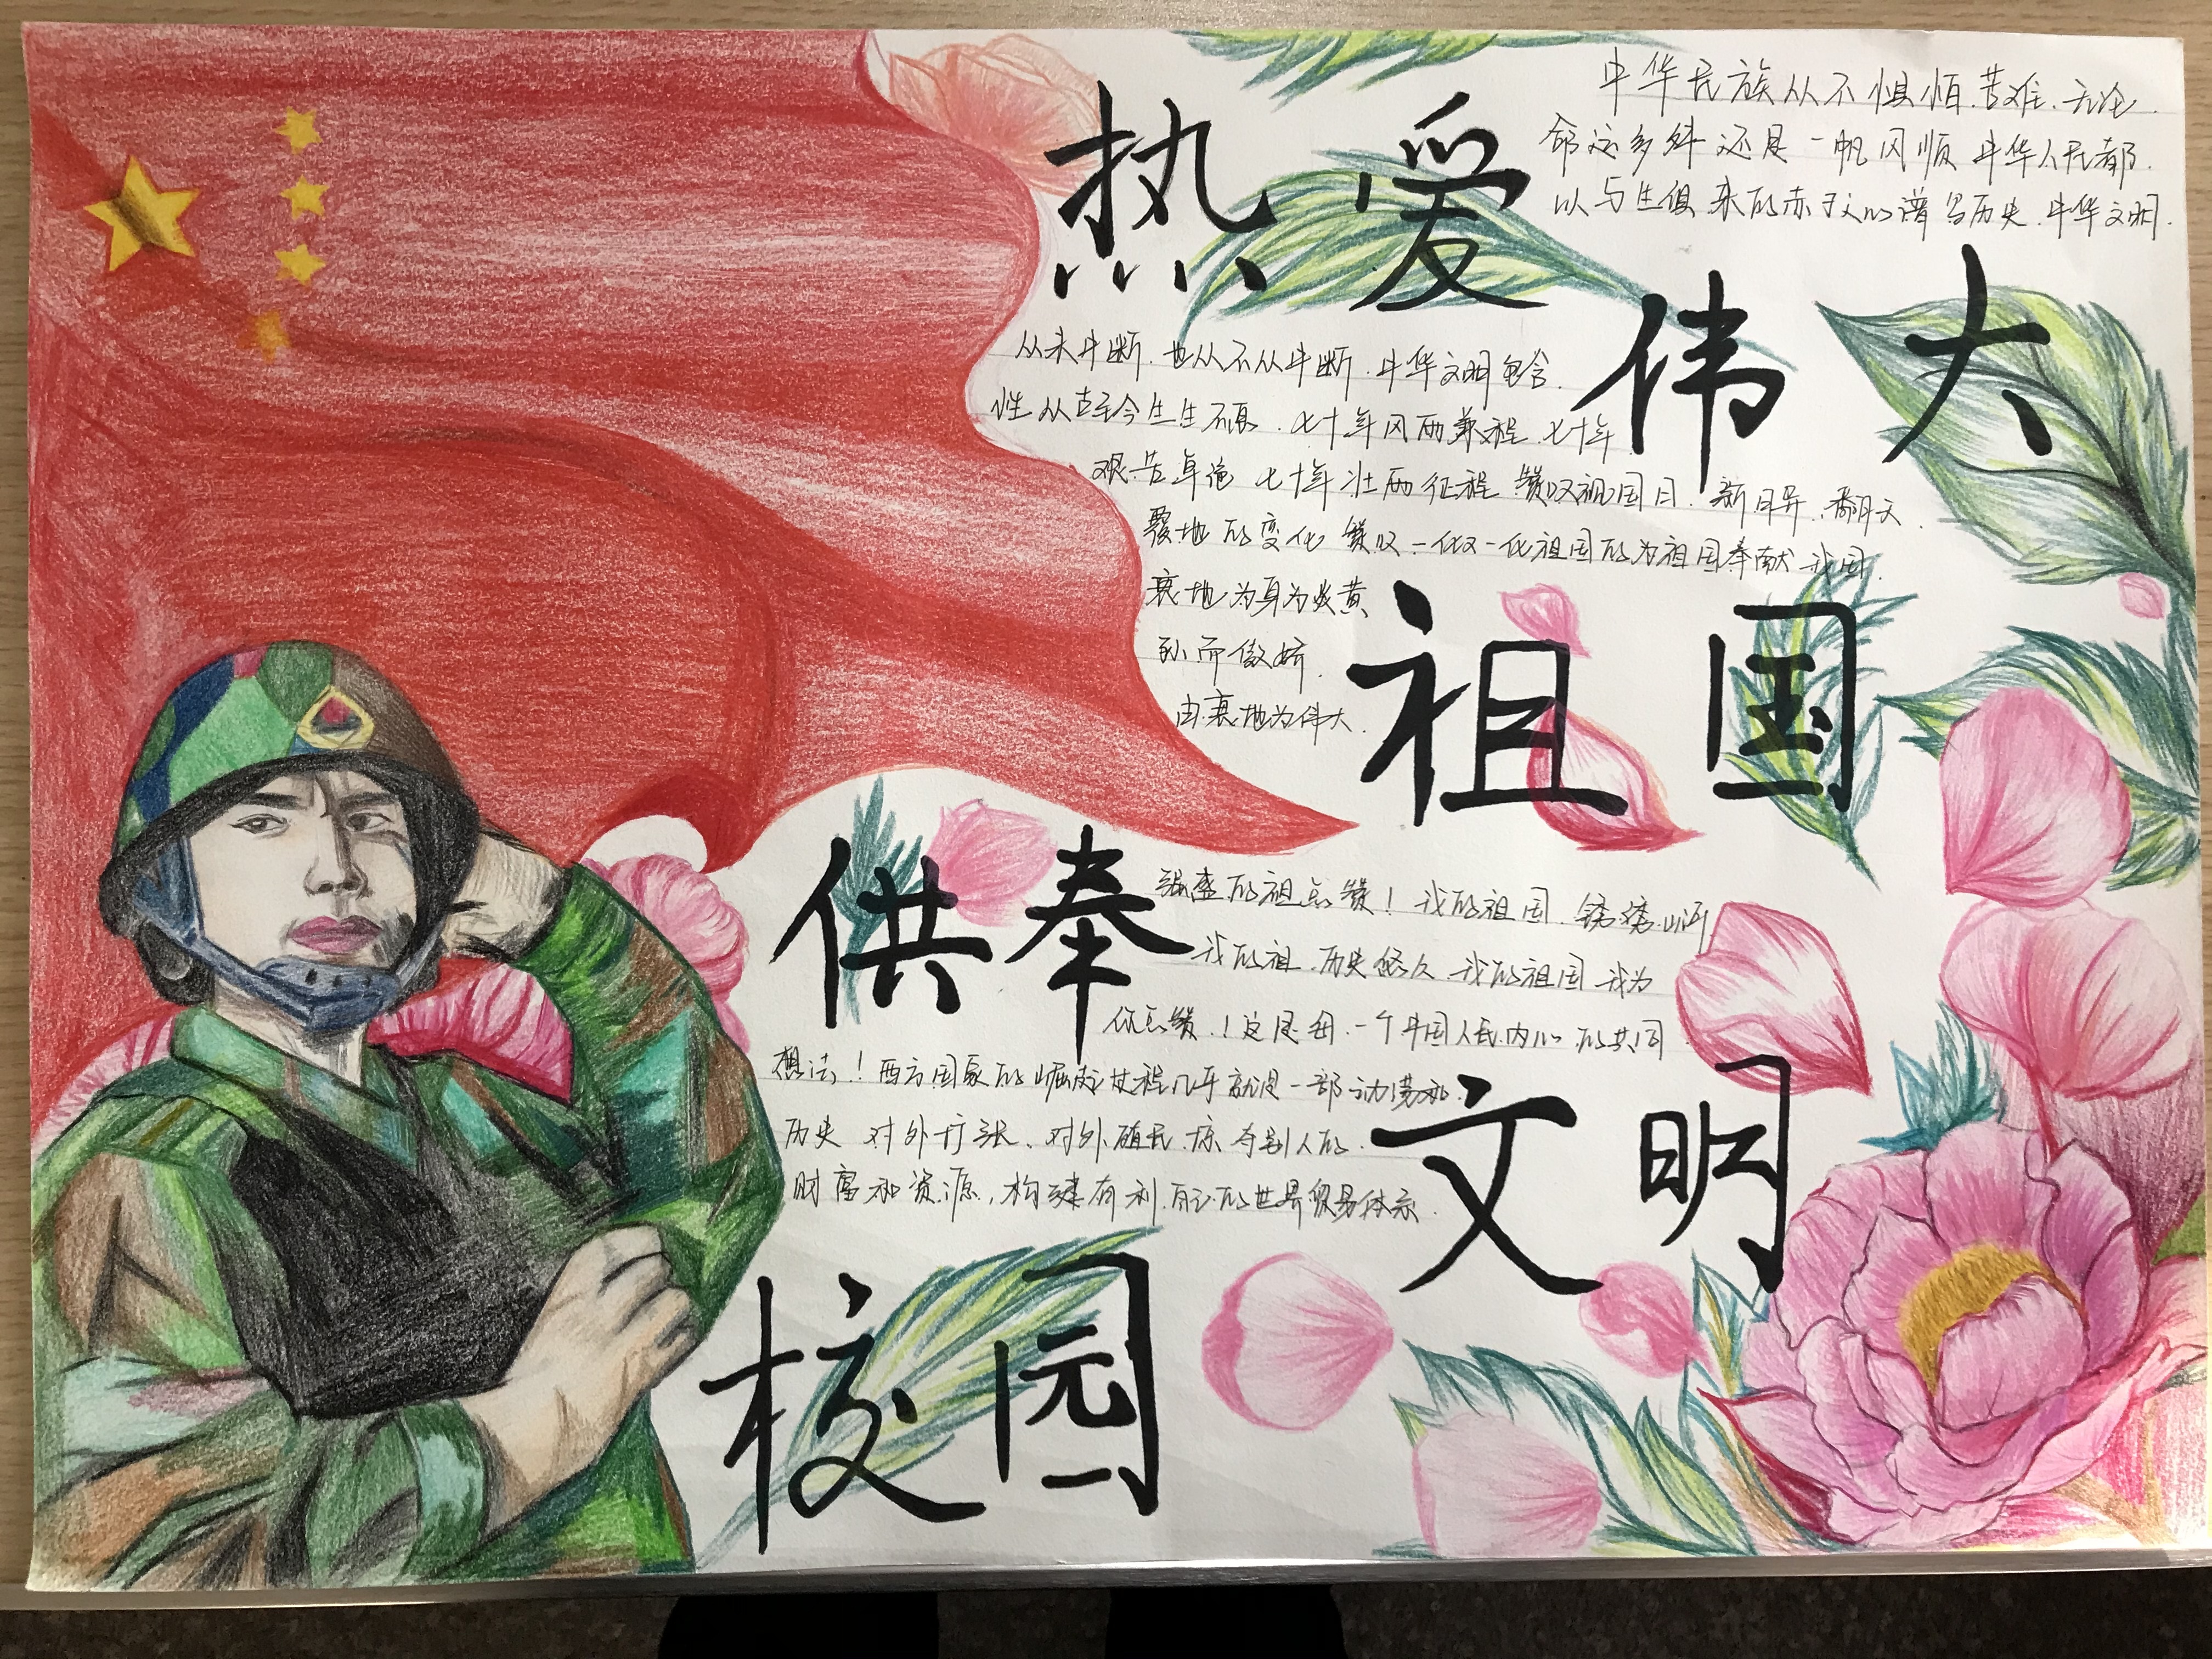 中华民族从不惧怕苦难.无论.
命运多舛还是一帆风顺中华人民都.
以与生俱来的赤子之心谱写历史.中华文明.
热爱
伟大
从未中断.也从不从中断.中华文明包含.
性从古至今生生不息.七十年风雨兼程.七十年
艰苦卓绝七十年壮丽征程赞叹祖国日.新月异.翻天.
覆地的变化赞叹一代又一代祖国的为祖国奉献我国.
衷地为身为炎黄
孙而傲娇.
由衷地为伟大.
祖国
供奉
强盛的祖点赞!我的祖国.锦绣山河
我的祖.历史悠久我的祖国我为
你点赞.!这是每.一个中国人民内心的共同
想法.!西方国家的崛起过程几乎就是一部动荡的.
历史对外扩张、对外殖民.掠夺别人的.
财富和资源,构建有利.自己的世界贸易体系.
文明
校园